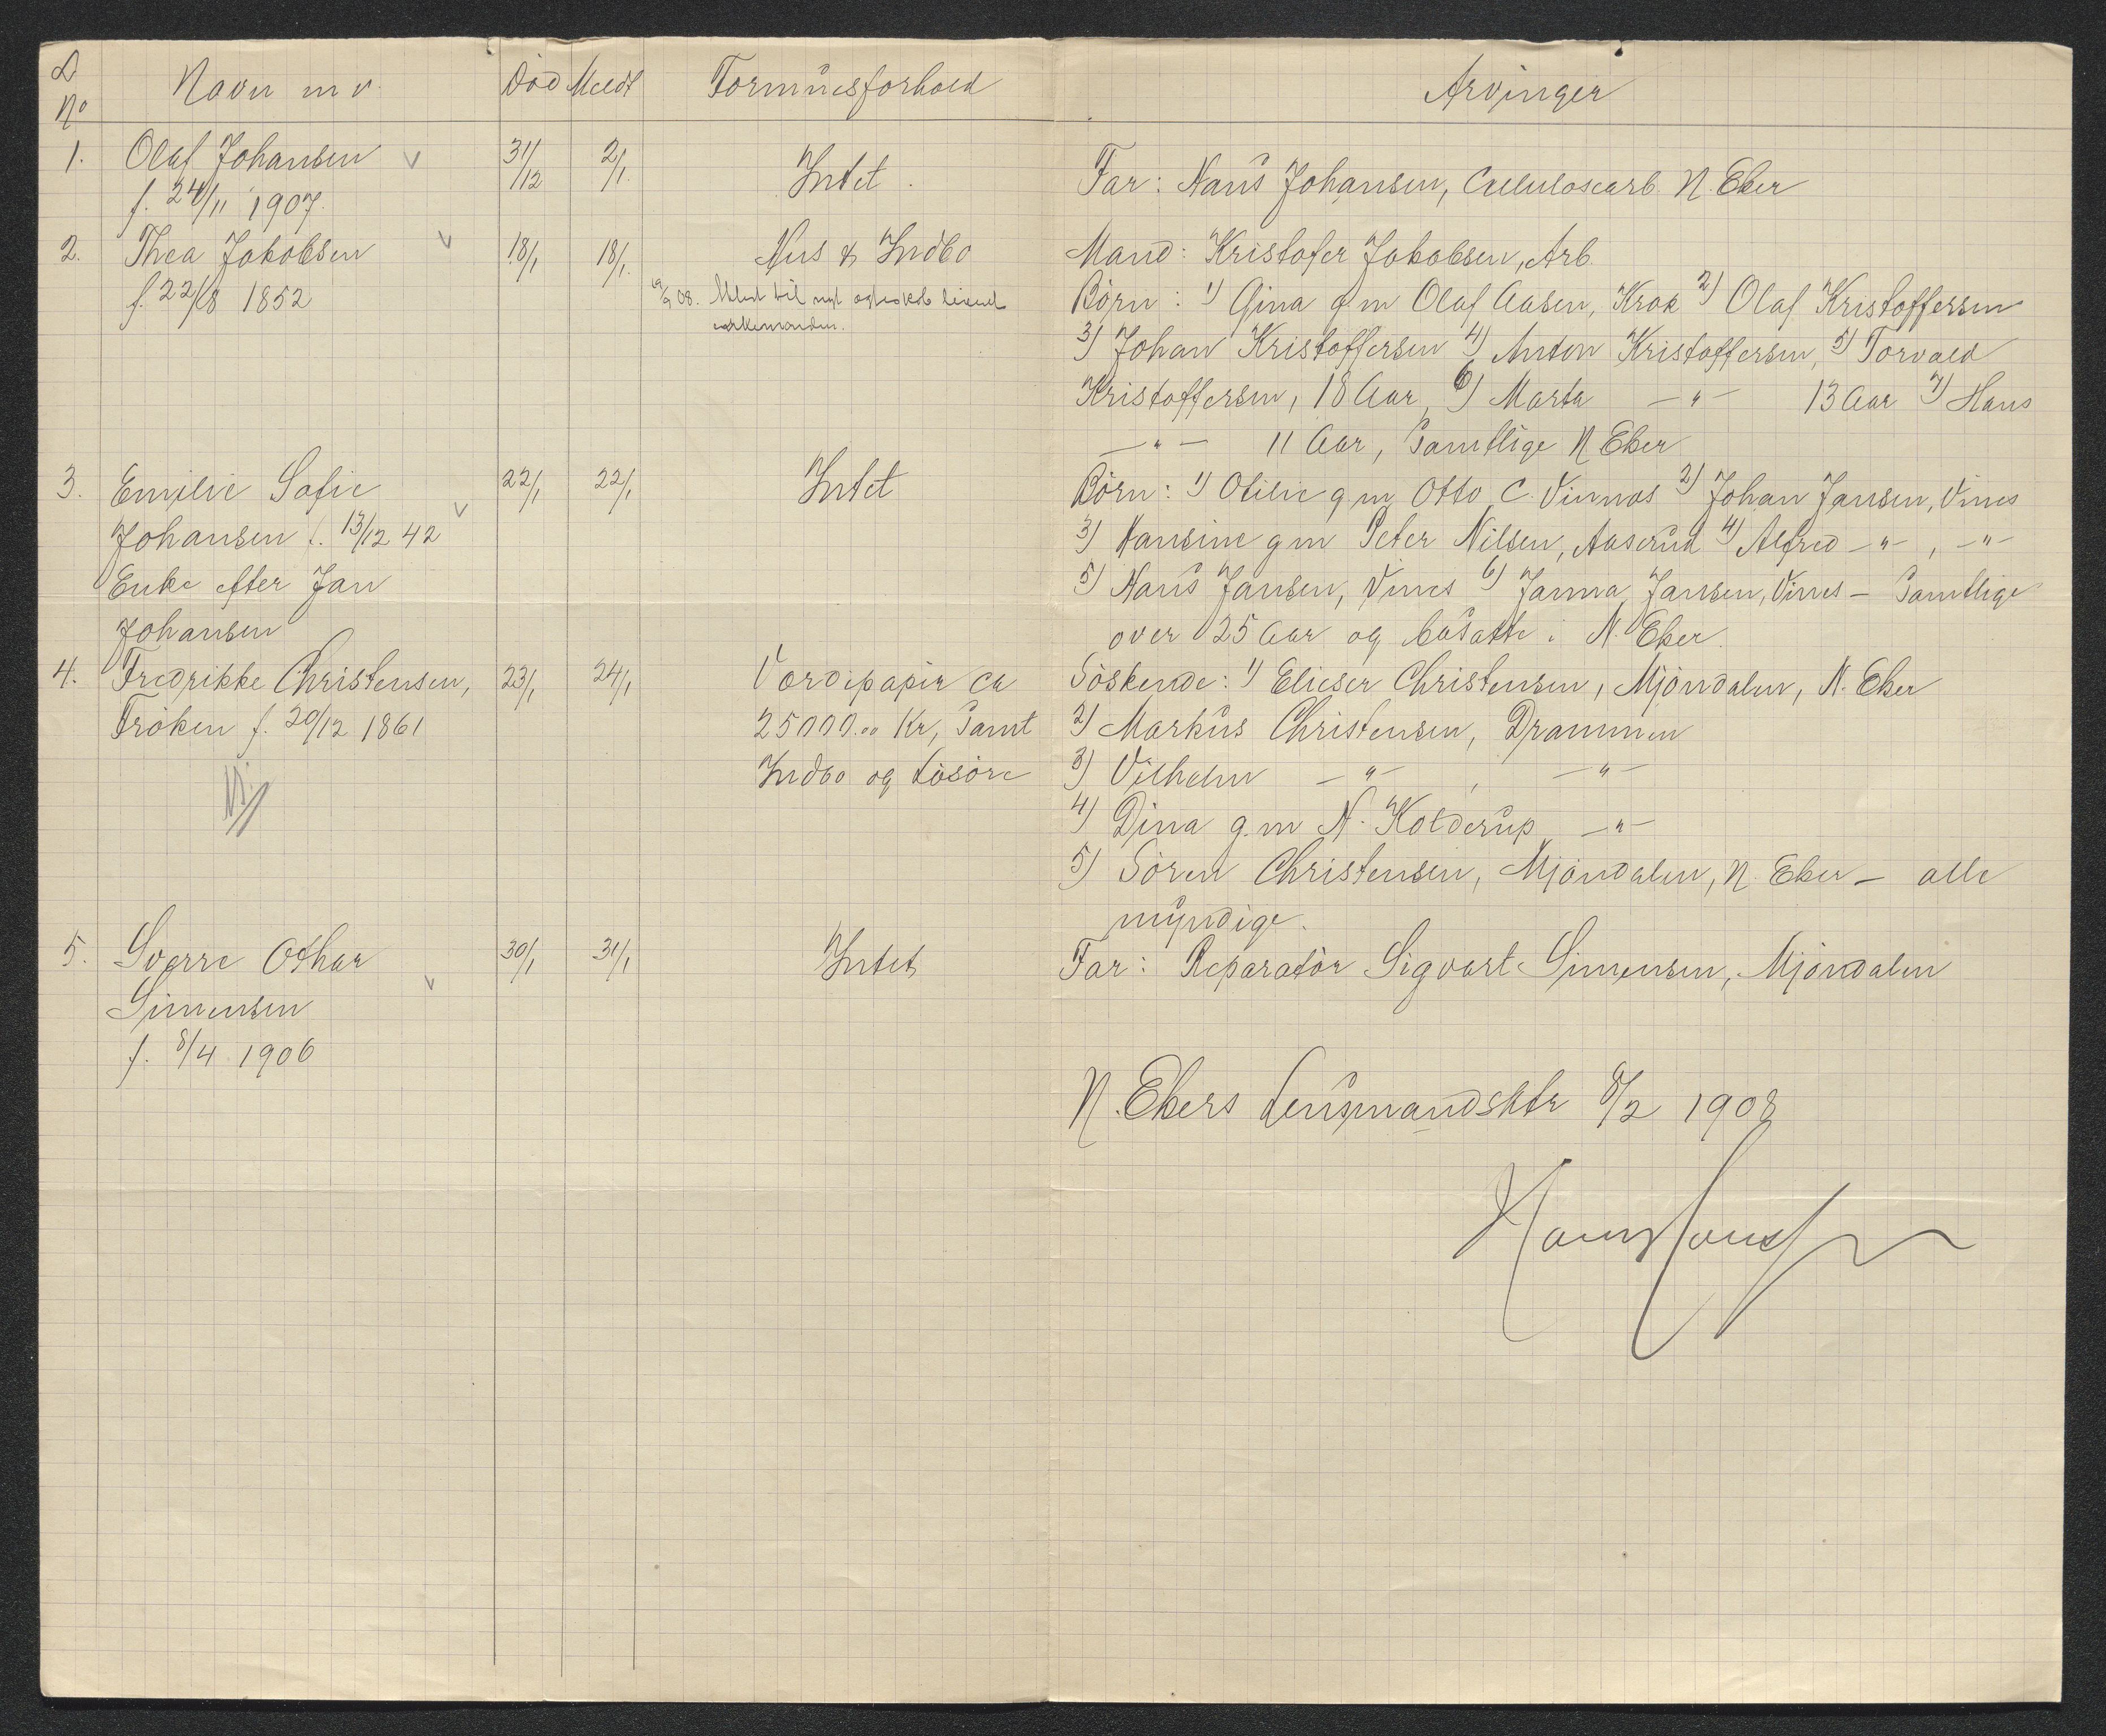 L No Navn m v. Död Meldt Formuesforhold Arvinger
1. Olaf Johansen 31/12 2/1. Intet. Far: Hans Johansen, Celulosearb. N. Eker
f. 24/11 1907.
2. Thea Jakobsen 18/1 18/1. Hus & Indbo Mand: Kristofer Jakobsen, Arb.
f. 22/8 1852 08. til Börn: 1) Gina g m Olaf Aasen, Krok 2) Olaf Kristoffersen
enkemanden. 3) Johan Kristoffersen 4) Anton Kristoffersen, 5) Torvald
Kristoffersen, 18 Aar, 6) Marta —"— 13 Aar 7) Hans
—"— 11 Aar, Samtlige N Eker
3. Emilie Sofie 22/1 22/1 Intet Börn: 1) Otilie g m Otto C. Vinnæs 2) Johan Jansen, Vines
Johansen f. 13/12 42 3) Hansine g m Peter Nilsen, Aaserud 4) Alfred —"—, —"—
Enke efter Jan 5) Hans Jansen, Vines 6) Janna Jansen, Vines — Samtlige
Johansen over 25 Aar og bosatte i N. Eker.
4. Fredrikke Christensen, 23/1 24/1 Værdipapir ca Söskende: 1) Elieser Christensen, Mjöndalen, N. Eker
Fröken f. 20/12 1861 25000.00 Kr, samt 2) Markus Christensen, Drammen
Indbo og Lösöre 3) Vilhelm —"—, —"—
4) Dina g. m N. Kolderup —"—
5) Sören Christensen, Mjöndalen, N. Eker — alle
myndige.
5. Sverre Othar 30/1 31/1 Intet Far: Reparatör Sigvart Simensen, Mjöndalen
Simensen
f. 8/4 1906
N. Ekers Lensmandsktr 8/2 1908